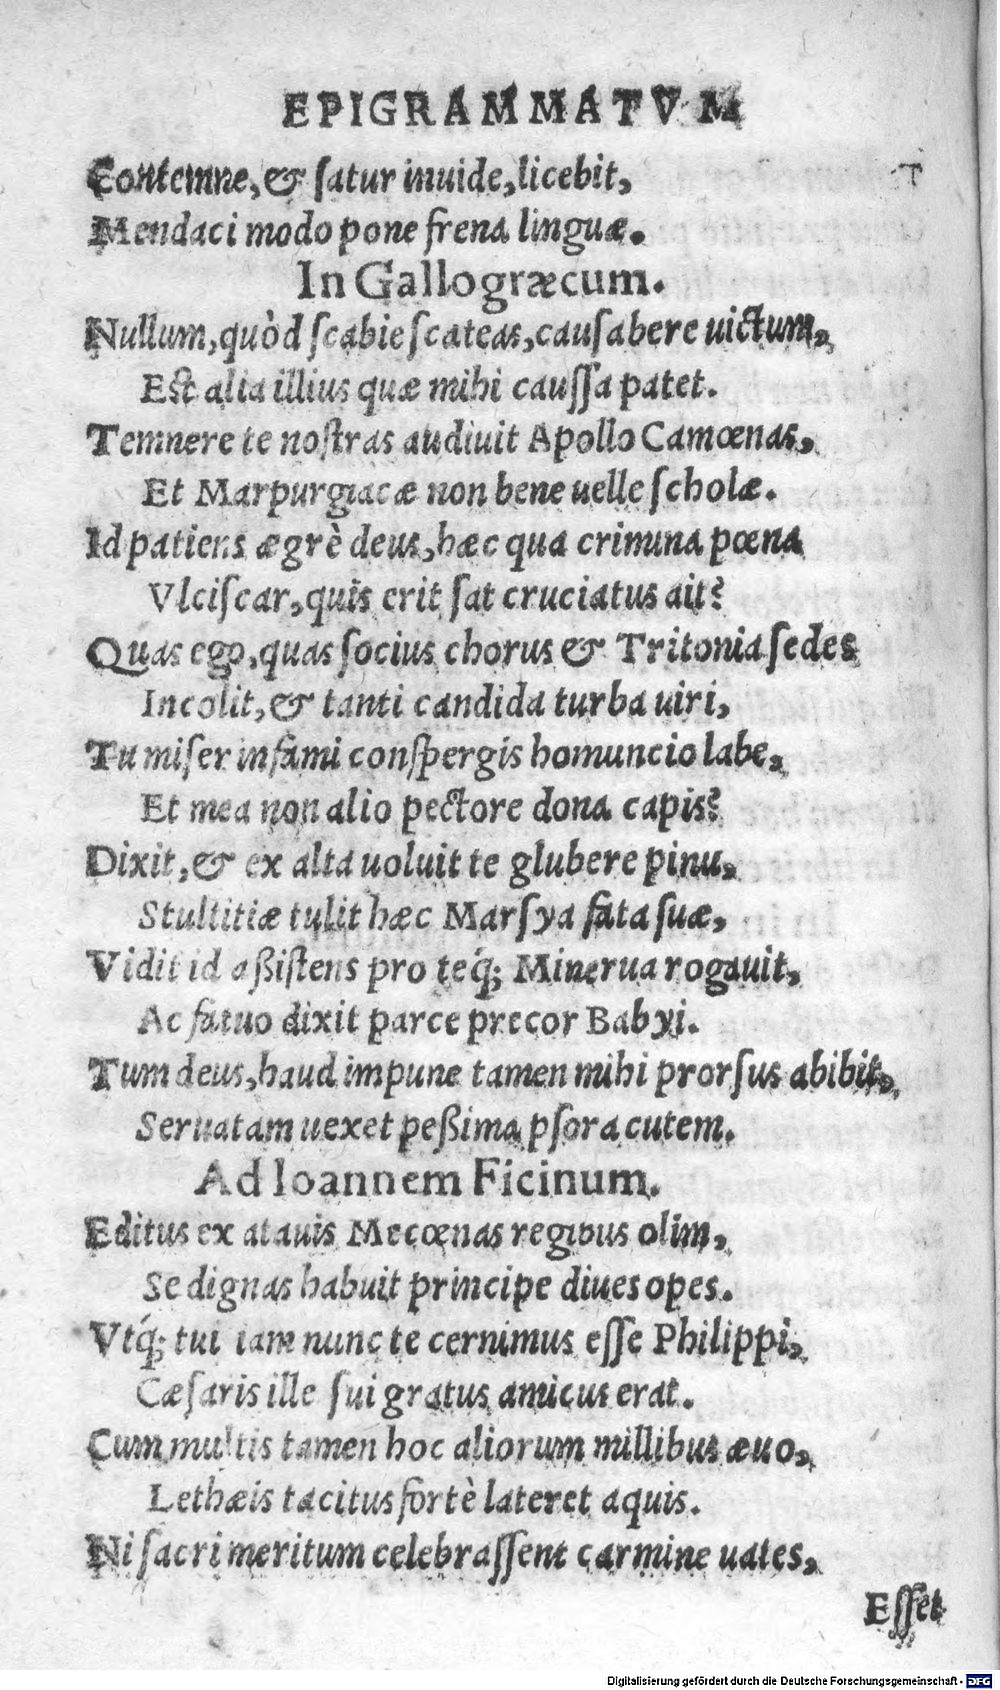 EPIGRAMMATVM
Contemne, & ſatur inuide, licebit,
Mendaci modo pone frena linguæ.
In Gallogræcum.
Nullum, quòd ſcabie ſcateas, cauſabere uictum,
Eſt alia illius quæ mihi cauſſa patet.
Temnere te noſtras audiuit Apollo Camœnas,
Et Marpurgiacæ non bene uelle ſcholæ.
Id patiens ægrè deus, hæc qua crimina pœna
Vlciſcar, quis erit ſat cruciatus ait?
Quas ego, quas ſocius chorus & Tritonia ſedes
Incolit, & tanti candida turba uiri,
Tu miſer infami conſpergis homuncio labe,
Et mea non alio pectore dona capis?
Dixit, & ex alta uoluit te glubere pinu,
Stultitiæ tulit hæc Marſya fata ſuæ,
Vidit id aßiſtens pro teq́; Minerua rogauit,
Ac fatuo dixit parce precor Babyi.
Tum deus, haud impune tamen mihi prorſus abibit,
Seruatam uexet peßima pſora cutem.
Ad Ioannem Ficinum.
Editus ex atauis Mecœnas regibus olim,
Se dignas habuit principe diues opes.
Vtq́; tui iam nunc te cernimus eſſe Philippi,
Cæſaris ille ſui gratus amicus erat.
Cum multis tamen hoc aliorum millibus æuo,
Lethæis tacitus fortè lateret aquis.
Ni ſacri meritum celebraſſent carmine uates,
Eſſet
Digitalisierung gefördert durch die Deutsche Forschungsgemeinschaft - DFG